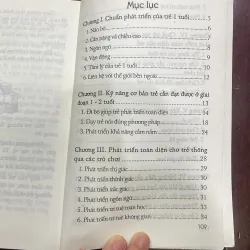 Mục lục
Chương I. Chuẩn phát triển của trẻ 1 tuổi
1. Não bộ 6
2. Cân nặng và chiều cao 7
3. Ngôn ngữ
4. Vận động
5. Tâm lý của trẻ 1 tuổi
6. Liên hệ với thế giới bên ngoài
Chương II. Kỹ năng cơ bản trẻ cần đạt được ở giai
đoạn 1 - 2 tuổi 13
1. Để trẻ bộ phát triển toàn diện 14
2. Dạy trẻ nói đúng phương pháp 18
3. Phát triển khả năng cầm nắm 24
Chương III. Phát triển toàn diện cho trẻ thông
qua các trò chơi 28
1. Phát triển thị giác 29
2. Phát triển thính giác
3. Phát triển xúc giác
4. Phát triển ngôn ngữ
5. Phát triển trí tuệ toán học
6. Phát triển trí tuệ không gian
109